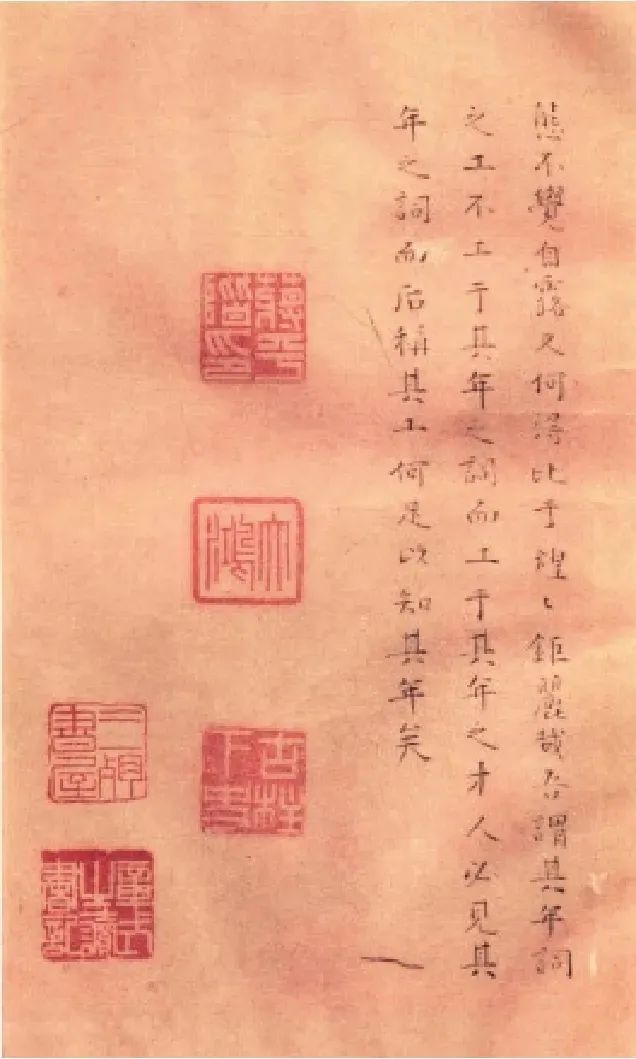 態不覺自露又何得比于煌〻鉅麗哉吾謂其年詞
之工不工于其年之詞而工于其年之才人必見其
年之詞而后稱其工何足以知其年矣
蔣平階印
大鴻